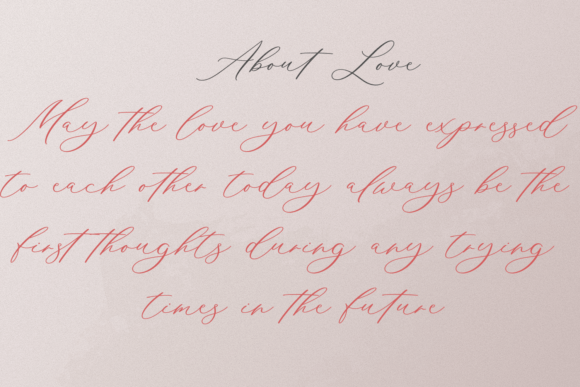 About Love
May the love you have expressed
to each other today always be the
first thoughts during any trying
times in the future